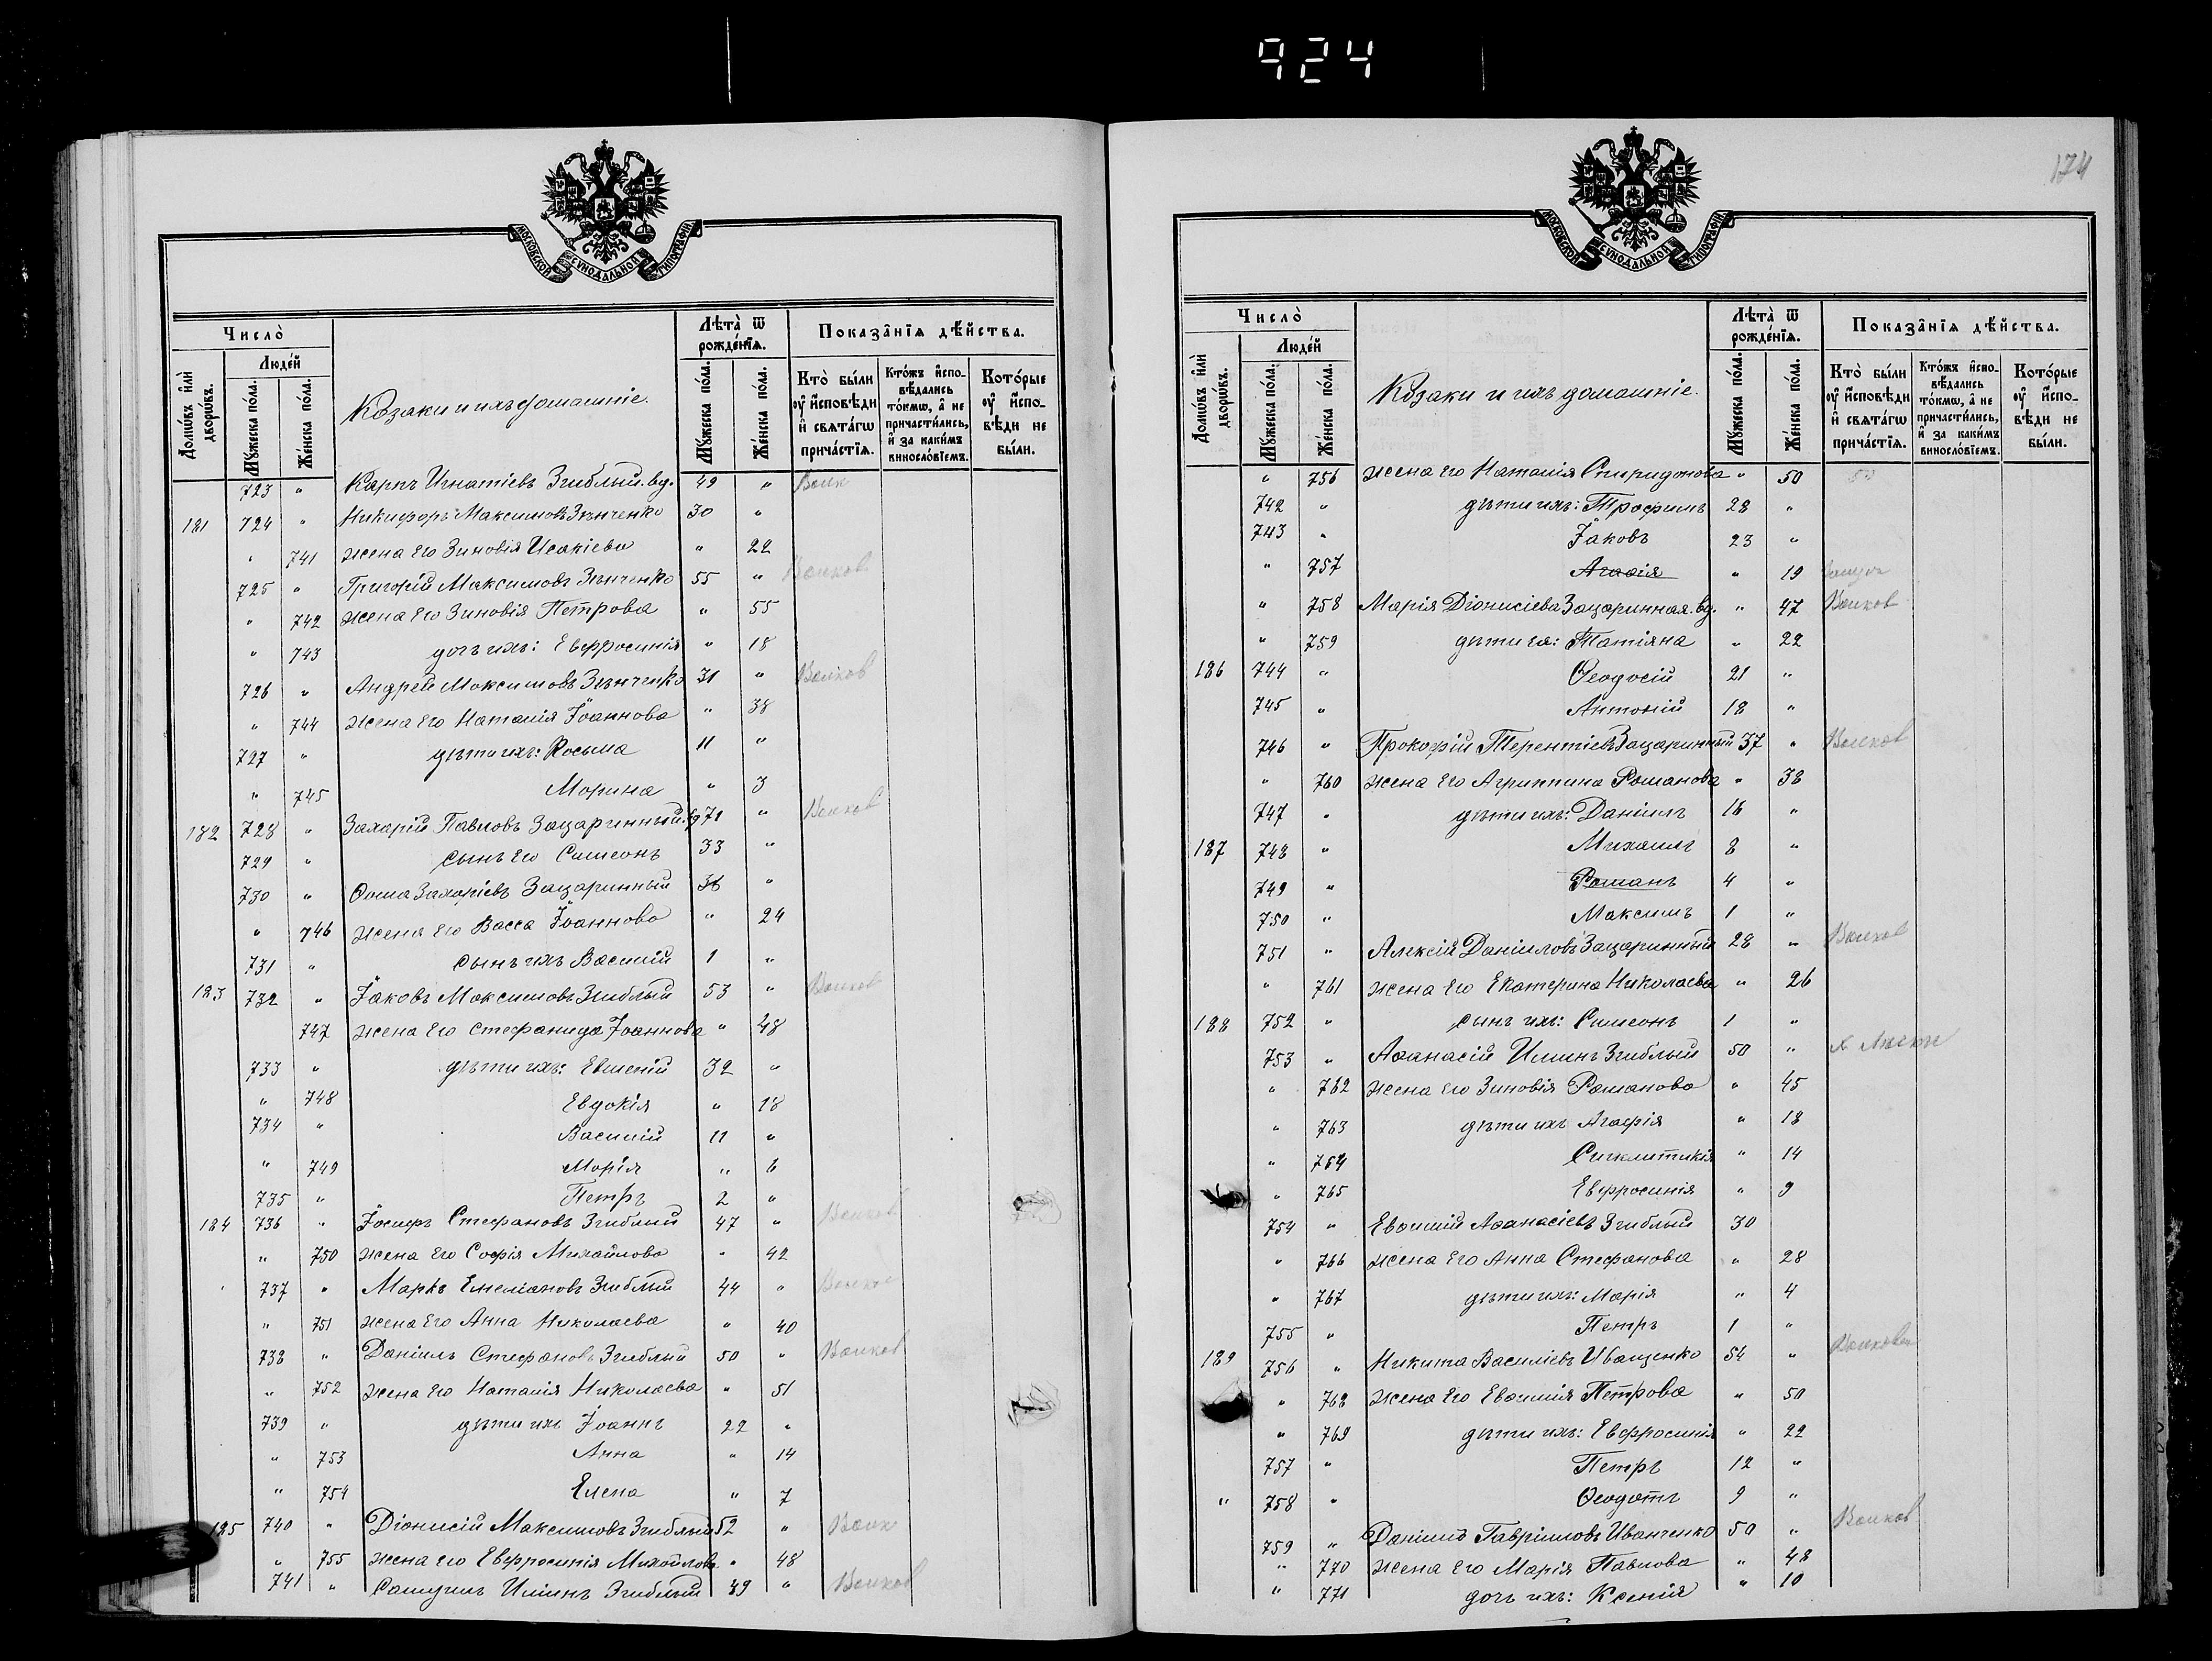 924
МОСКОВСКОЙ СѴНОДАЛЬНОЙ ТИПОГРАФІИ
Число̀
Людéй
Домѡ́въ и҆лѝ дворѡ́въ.
Мꙋ́жеска по́ла.
Же́нска по́ла.
Козаки и ихъ домашніе.
Лѣта̀ ѿ рожде́нїѧ.
Мꙋ́жеска по́ла.
Же́нска по́ла.
Показа̑нїѧ дѣ́йства.
Кто̀ бы́ли ᲂу҆ и҆сповѣди и҆ свѧта́гѡ прича́стїѧ.
Кто́жъ и҆спо-вѣдались то́кмѡ, а҆ не причасти́лись, и҆ за каки́мъ винослóвїемъ.
Кото́рые ᲂу҆ и҆спо-вѣди не бы́ли.
723 " Карпъ Игнатіевъ Згиблый. вд. 49 " Волк
181 724 " Никифоръ Максимовъ Зѣнченко 30 "
" 741 жена его Зиновія Исакіева " 22
725 " Григорій Максимовъ Зѣнченко 55 " Волков
" 742 жена его Зиновія Петрова " 55
" 743 дочь ихъ: Евфросинія " 18
726 " Андрей Максимовъ Зѣнченко 31 " Волков
" 744 жена его Наталія Іоаннова " 38
727 " дѣти ихъ: Косьма 11 "
" 745 Марина " 3
182 728 " Захарій Павловъ Зацаринный. вд 71 " Волков
729 " сынъ его Симеонъ 33 "
730 " Ѳома Захаріевъ Зацаринный 36 "
" 746 жена его Васса Іоаннова " 24
731 " сынъ ихъ Василій 1 "
183 732 " Іаковъ Максимовъ Згиблый 53 " Волков
747 жена его Стефанида Іоаннова " 48
733 " дѣти ихъ: Евгеній 32 "
" 748 Евдокія " 18
734 " Василій 11 "
" 749 Марія " 6
735 " Петръ 2 "
184 736 " Іосифъ Стефановъ Згиблый 47 " Волков
" 750 жена его Софія Михайлова " 42
737 " Маркъ Емеліановъ Згиблый 44 " Волков
" 751 жена его Анна Николаева " 40
738 " Даніилъ Стефановъ Згиблый 50 " Волков
" 752 жена его Наталія Николаева " 51
739 " дѣти ихъ Іоаннъ 22 "
" 753 Анна " 14
" 754 Елена " 7
185 740 " Діонисій Максимовъ Згиблый 52 " Волк
" 755 жена его Евфросинія Михайлова " 48
741 " Самуилъ Илiинъ Згиблый 49 " Волков
174
МОСКОВСКОЙ СѴНОДАЛЬНОЙ ТИПОГРАФІИ
Число̀
Людéй
Домѡ́въ и҆лѝ дворѡ́въ.
Мꙋ́жеска по́ла.
Же́нска по́ла.
Козаки и ихъ домашніе.
Лѣта̀ ѿ рожде́нїѧ.
Мꙋ́жеска по́ла.
Же́нска по́ла.
Показа̑нїѧ дѣ́йства.
Кто̀ бы́ли ᲂу҆ и҆сповѣди и҆ свѧта́гѡ прича́стїѧ.
Кто́жъ и҆спо-вѣдались то́кмѡ, а҆ не причасти́лись, и҆ за каки́мъ винослóвїемъ.
Кото́рые ᲂу҆ и҆спо-вѣди не бы́ли.
" 756 жена его Наталія Спиридонова " 50
742 " дѣти ихъ: Трофимъ 28 "
743 " Іаковъ 23 "
" 757 Агафія " 19
" 758 Марія Діонисіева Зацаринная. вд. " 47 Волков
" 759 дѣти ея: Татіяна " 22
186 744 " Ѳеодосій 21 "
745 " Антоній 18 "
746 " Прокофій Терентіевъ Зацаринный 37 " Волков
" 760 жена его Агриппина Романова " 38
747 " дѣти ихъ: Даніилъ 16 "
187 748 " Михаилъ 8 "
749 " Романъ 4 "
750 " Максимъ 1 "
751 " Алексій Даніиловъ Зацаринный 28 " Волков
" 761 жена его Екатерина Николаева " 26
188 752 " сынъ ихъ: Симеонъ 1 "
753 " Аѳанасій Илiинъ Згиблый 50 "
" 762 жена его Зиновія Романова " 45
" 763 дѣти ихъ Агафія " 18
" 764 Сигклитикія " 14
" 765 Евфросинія " 9
754 " Евѳимій Аѳанасіевъ Згиблый 30
" 766 жена его Анна Стефанова " 28
" 767 дѣти ихъ: Марія " 4
755 " Петръ 1 "
189 756 " Никита Василіевъ Иващенко 54 " Волков
" 768 жена его Евѳимія Петрова " 50
" 769 дѣти ихъ: Евфросинія " 22
757 " Петръ 12 "
" 758 " Ѳеодотъ 9 "
759 " Даніилъ Гавріиловъ Иванченко 50 " Волков
" 770 жена его Марія Павлова " 48
" 771 дочь ихъ: Ксенія " 10